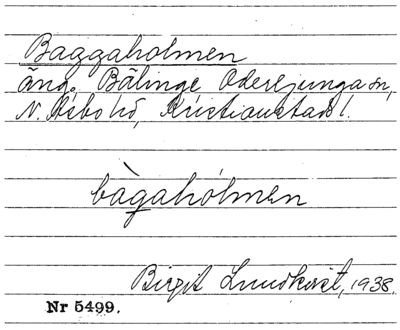 Baggaholmen
äng. Bälinge Oderljunga sn,
N. Åsbo hd, Kristianstads l.
bàgahólmen
Birgit Lundkvist, 1938.
Nr 5499.